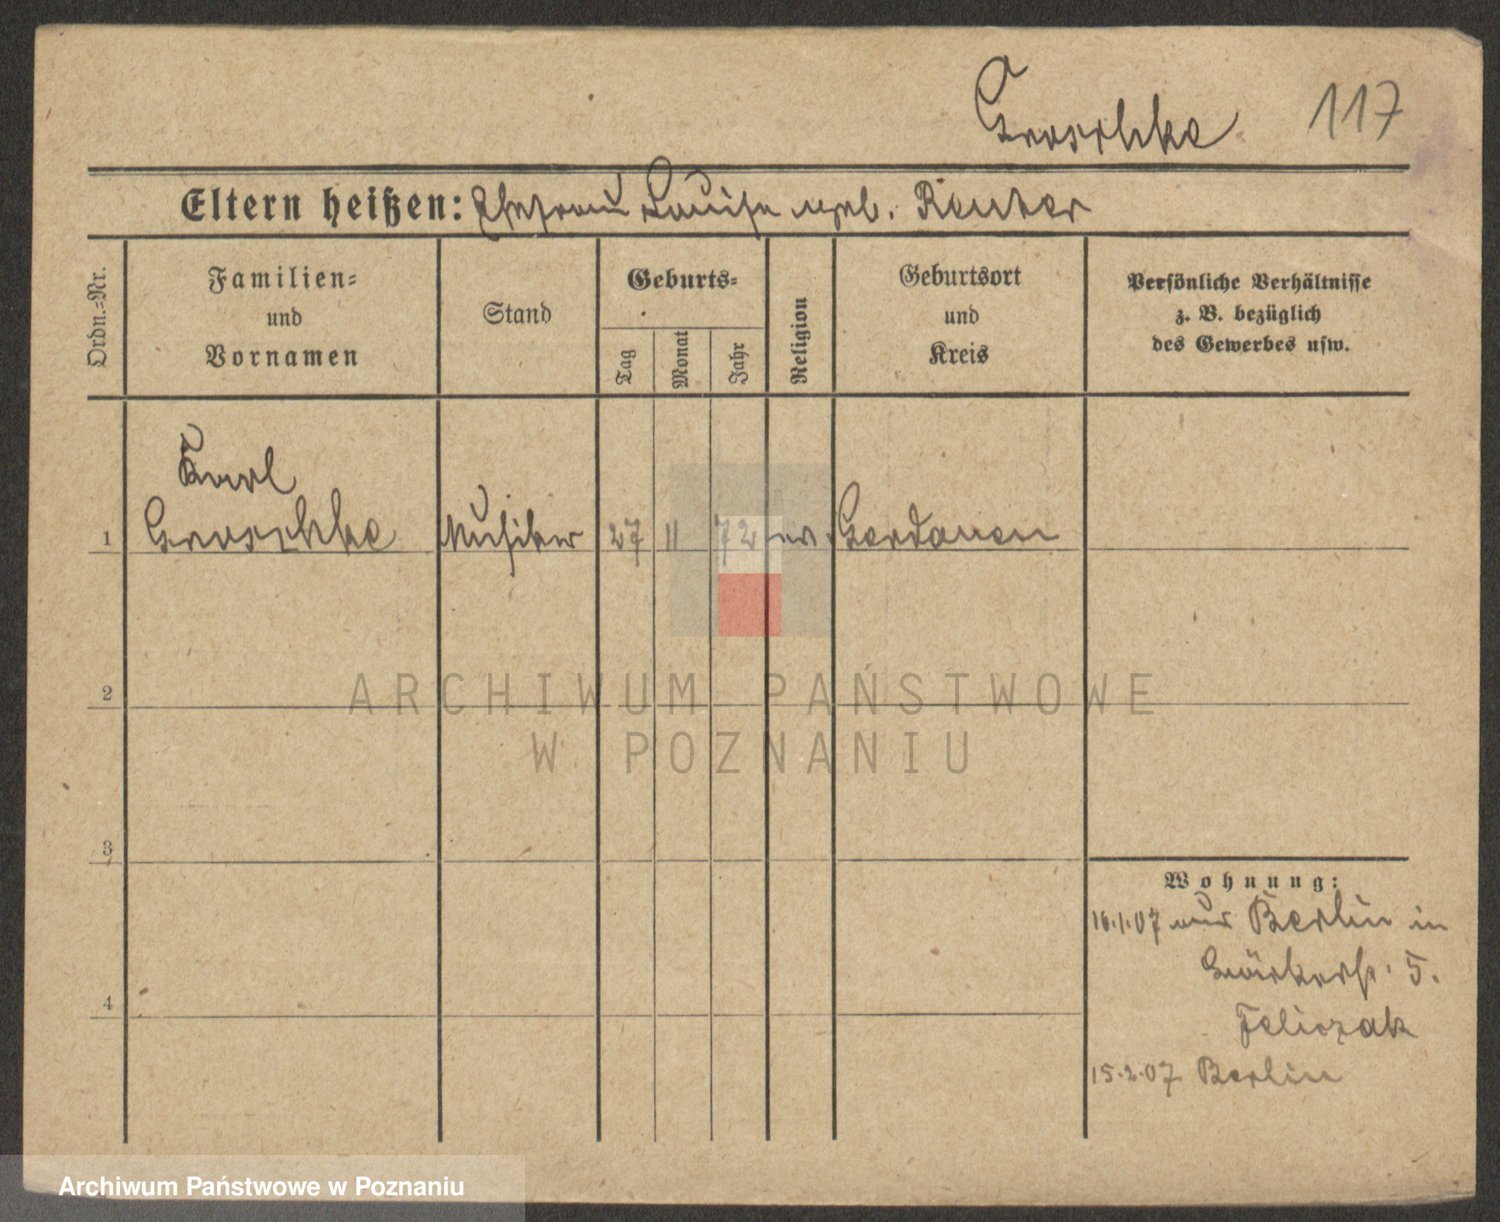 Groschke 117
Eltern heißen: Ehefrau Louise geb. Reuter
Ordn.=Nr.
Familien=
und
Vornamen
Stand
Geburts=
Tag
Monat
Jahr
Religion
Geburtsort
und
Kreis
Persönliche Verhältnisse
z. B. bezüglich
des Gewerbes usw.
Karl
1 Groschke Musiker 27 11 72 ev. Gerdauen
2
ARCHIWUM PAŃSTWOWE
W POZNANIU
3
Wohnung:
16.1.07 aus Berlin in
5.
Feliczak
4
15.2.07 Berlin
Archiwum Państwowe w Poznaniu